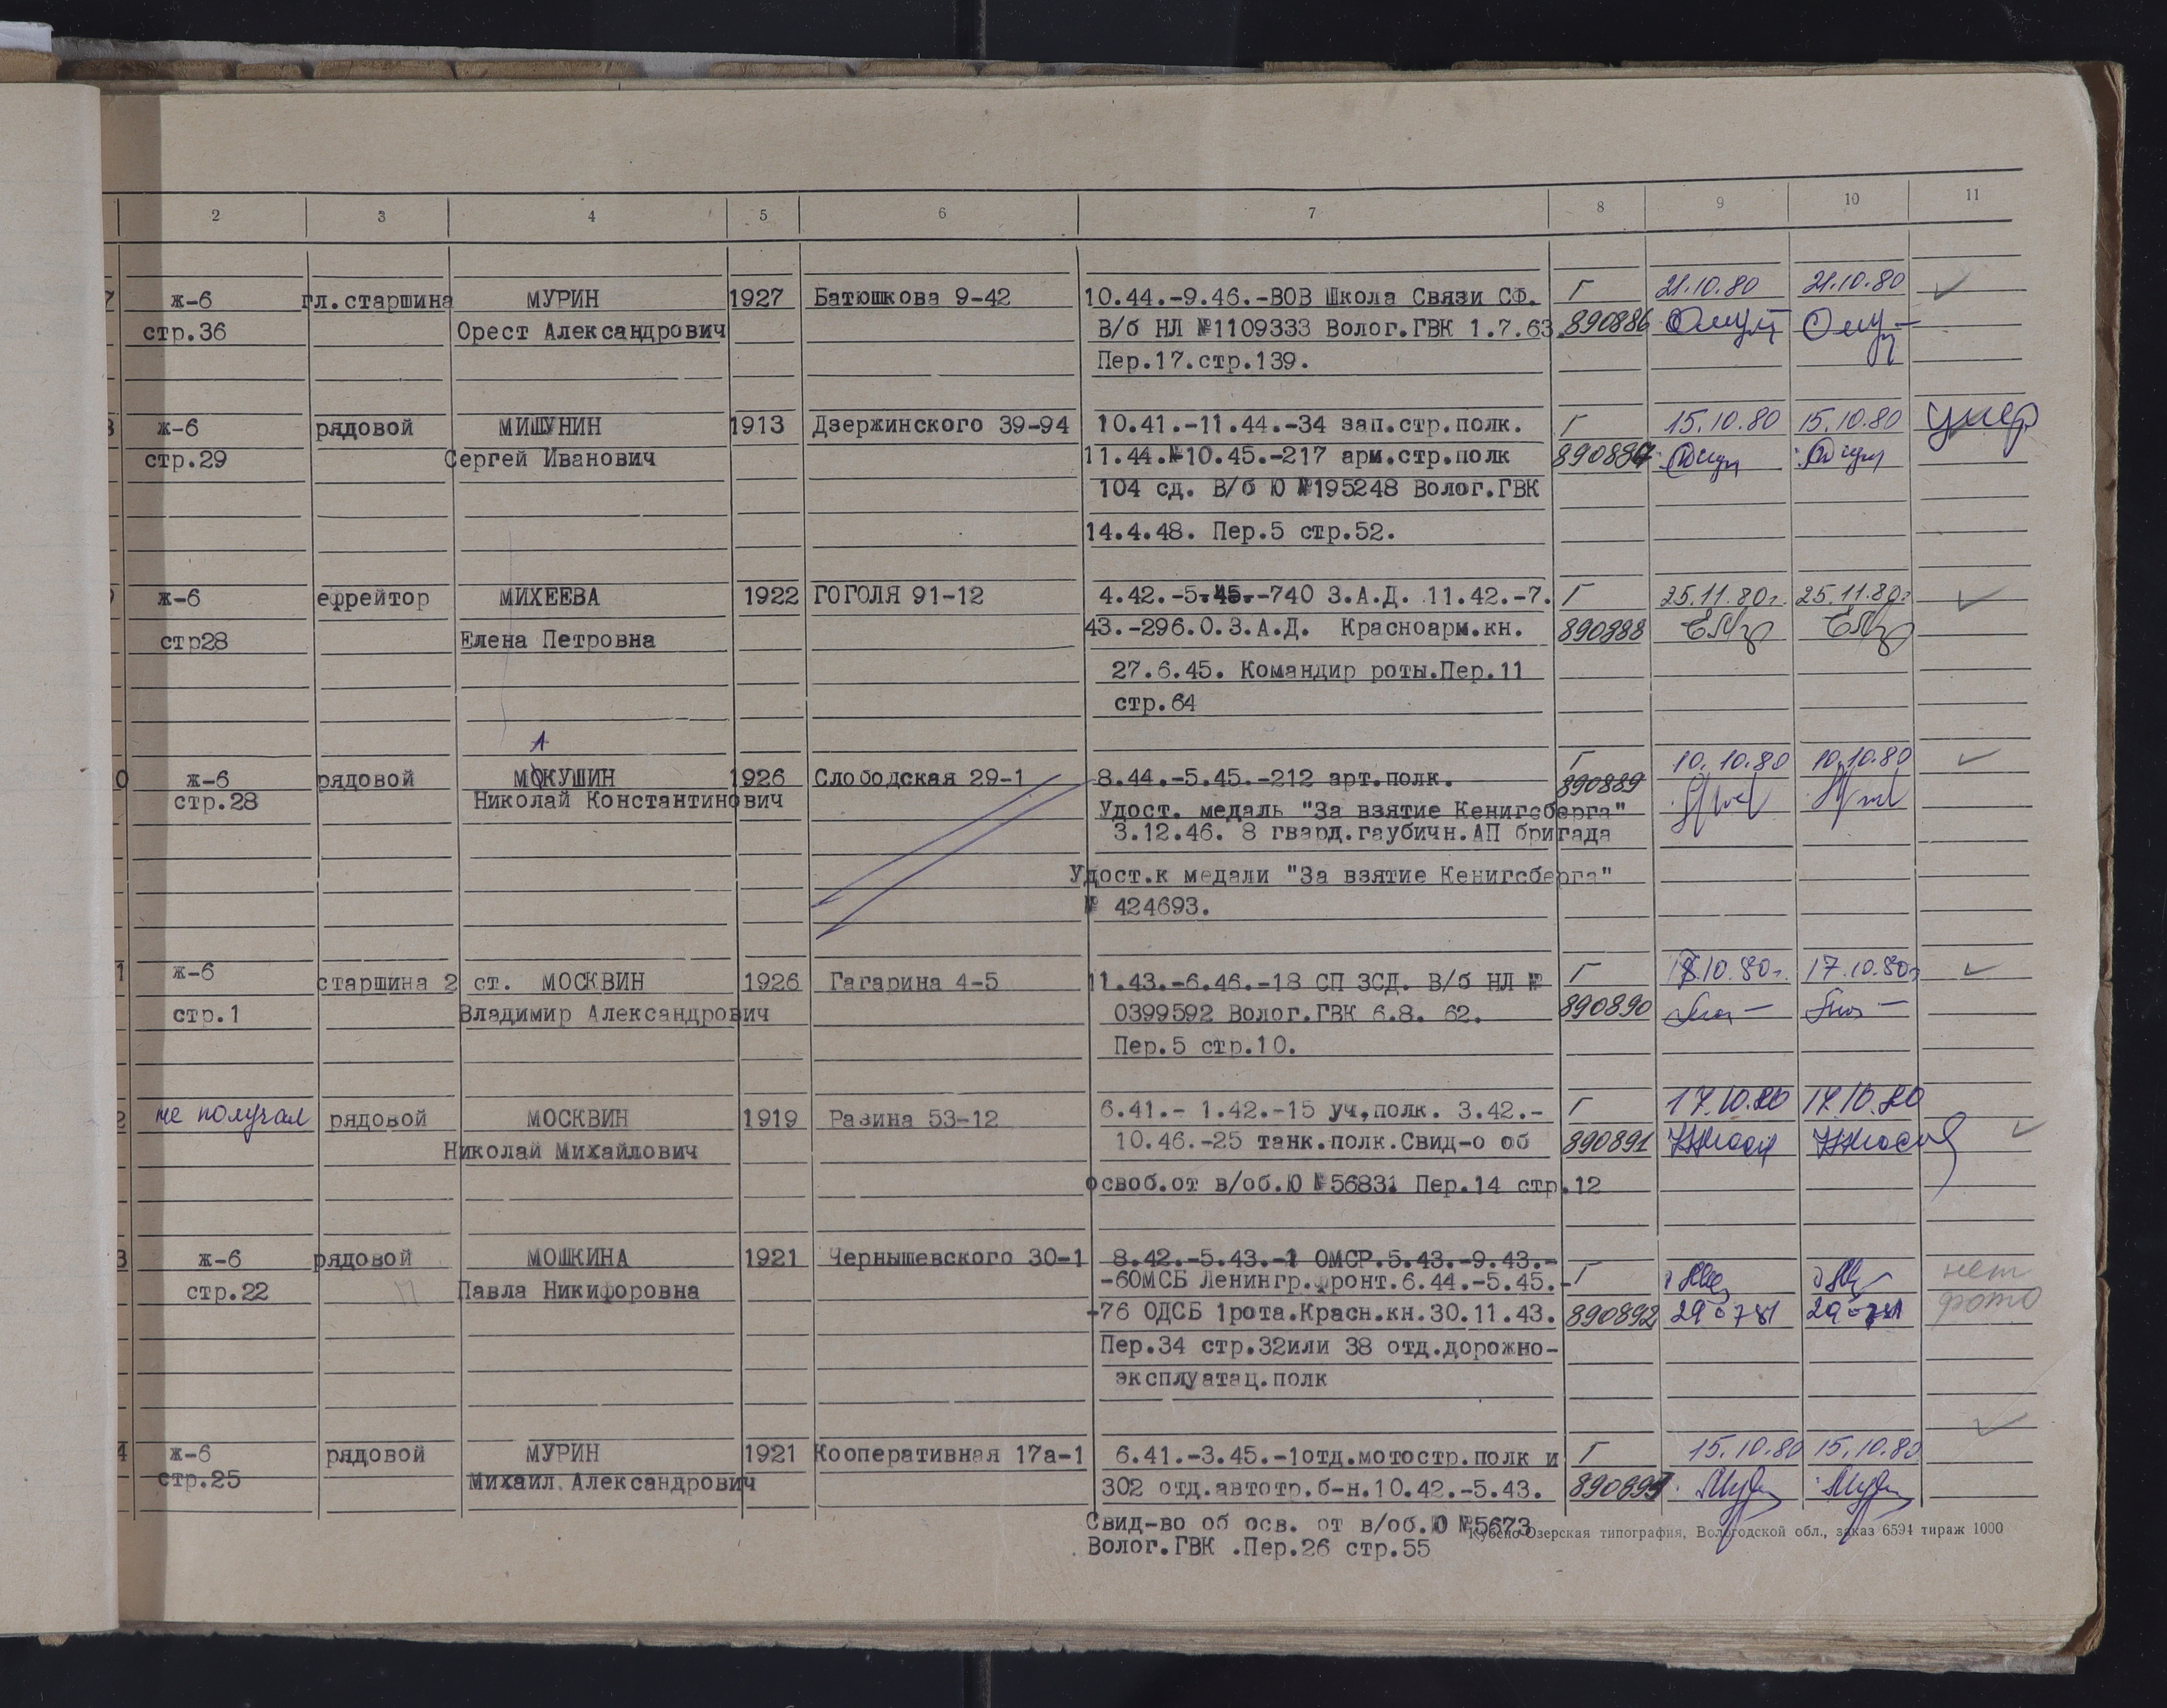 2 3 4 5 6 7 8 9 10 11
7 ж-6 гл.старшина МУРИН 1927 Батюшкова 9-42 10.44.-9.46.-ВОВ Школа Связи СФ. Г 21.10.80 21.10.80
стр.36 Орест Александрович В/б НЛ №1109333 Волог.ГВК 1.7.63. 890886
Пер.17.стр.139.
8 ж-6 рядовой МИШУНИН 1913 Дзержинского 39-94 10.41.-11.44.-34 зап.стр.полк. Г 15.10.80 15.10.80 умер
стр.29 Сергей Иванович 11.44.-10.45.-217 арм.стр.полк 890887
104 сд. В/б Ю №195248 Волог.ГВК
14.4.48. Пер.5 стр.52.
ж-6 ефрейтор МИХЕЕВА 1922 ГОГОЛЯ 91-12 4.42.-5.45.-740 З.А.Д. 11.42.-7. Г 25.11.80г. 25.11.80г
стр28 Елена Петровна 43.-296.О.З.А.Д. Красноарм.кн. 890888
27.6.45. Командир роты.Пер.11
стр.64
А
0 ж-6 рядовой МОКУШИН 1926 Слободская 29-1 8.44.-5.45.-212 арт.полк. Г 890889 10.10.80 10.10.80
стр.28 Николай Константинович Удост. медаль "За взятие Кенигсберга"
3.12.46. 8 гвард.гаубичн.АП бригада
Удост.к медали "За взятие Кенигсберга"
№ 424693.
1 ж-6 старшина 2 ст. МОСКВИН 1926 Гагарина 4-5 11.43.-6.46.-18 СП ЗСД. В/б НЛ № Г 18.10.80г. 17.10.80г
стр.1 Владимир Александрович 0399592 Волог.ГВК 6.8. 62. 890890
Пер.5 стр.10.
2 не получал рядовой МОСКВИН 1919 Разина 53-12 6.41.- 1.42.-15 уч,полк. 3.42.- Г 17.10.80 17.10.80
Николай Михайлович 10.46.-25 танк.полк.Свид-о об 890891
освоб.от в/об.Ю №56831 Пер.14 стр.12
3 ж-6 рядовой МОШКИНА 1921 Чернышевского 30-1 8.42.-5.43.-1 ОМСР.5.43.-9.43.-
стр.22 П Павла Никифоровна -6ОМСБ Ленингр.фронт.6.44.-5.45.- Г нет
-76 ОДСБ 1рота.Красн.кн.30.11.43. 890892 290781 290781 фото
Пер.34 стр.32или 38 отд.дорожно-
эксплуатац.полк
4 ж-6 рядовой МУРИН 1921 Кооперативная 17а-1 6.41.-3.45.-1отд.мотостр.полк и Г 15.10.80 15.10.80
стр.25 Михаил Александрович 302 отд.автотр.б-н.10.42.-5.43. 890893
Свид-во об осв. от в/об.Ю №5673
Кубено-Озерская типография, Вологодской обл., заказ 6594 тираж 1000
Волог.ГВК .Пер.26 стр.55